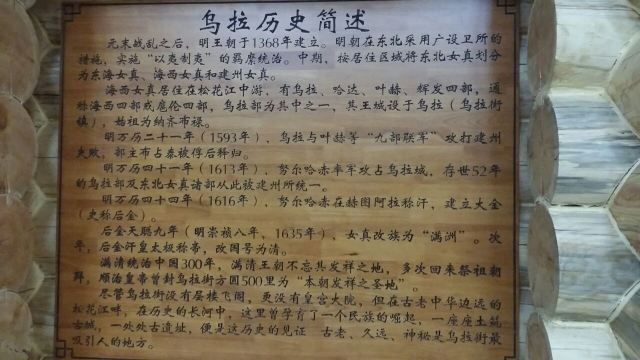 乌拉历史简述
元末战乱之后，明王朝于1368年建立。明朝在东北采用广设卫所的
措施，实施“以夷制夷”的羁縻统治。中期，按居住区域将东北女真划分
为东海女真、海西女真和建州女真。
海西女真居住在松花江中游，有乌拉、哈达、叶赫、辉发四部，通
称海西四部或扈伦四部，乌拉部为其中之一，其王城设于乌拉（乌拉街
镇），始祖为纳齐布禄。
明万历二十一年（1593年），乌拉与叶赫等“九部联军”攻打建州
失败，部主布占泰被俘后释归。
明万历四十一年（1613年），努尔哈赤率军攻占乌拉城，存世52年
的乌拉部及东北女真诸部从此被建州所统一。
明万历四十四年（1616年），努尔哈赤在赫图阿拉称汗，建立大金
（史称后金）。
后金天聪九年（明崇祯八年，1635年），女真改族为“满洲”。次
年，后金汗皇太极称帝，改国号为清。
满清统治中国300年，满清王朝不忘其发祥之地，多次回来祭祖朝
拜，顺治皇帝曾封乌拉街方圆500里为“本朝发祥之圣地”。
尽管乌拉街没有层楼飞阁，更没有皇宫大院，但在古老中华边远的
松花江畔，在历史的长河中，这里曾孕育了一个民族的崛起，一座座土筑
古城，一处处古遗址，便是这历史的见证 古老、久远、神秘是乌拉街最
吸引人的地方。